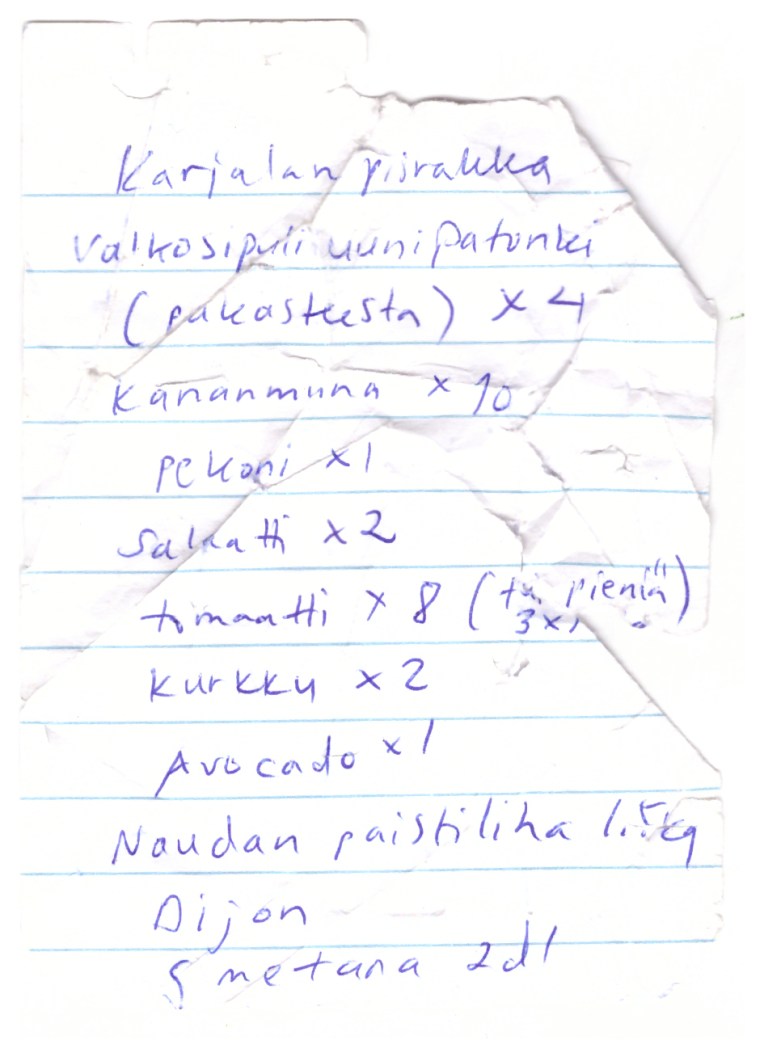 Karjalan piirakka
Valkosipuli uunipatonki
(pakasteesta) x 4
Kananmuna x 10
pekoni x 1
Salaatti x 2
tomaatti x 8 (tai pieniä)
3x
kurkku x 2
Avocado x 1
Naudan paistiliha 1.5kg
Dijon
Smetana 2dl